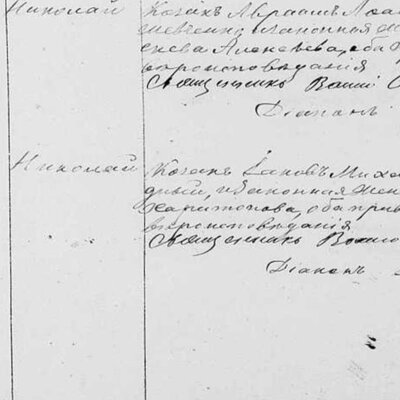 Николай
Козакъ Авраамъ Лоа
Шевченко, и законная Же
кова Алексѣева, оба
вѣроисповѣданія
Священникъ
Діаконъ
Николай
Козакъ Іаковъ Миха
дный, и законная жен
Харитонова, оба пра
вѣроисповѣданія
Священникъ
Діаконъ